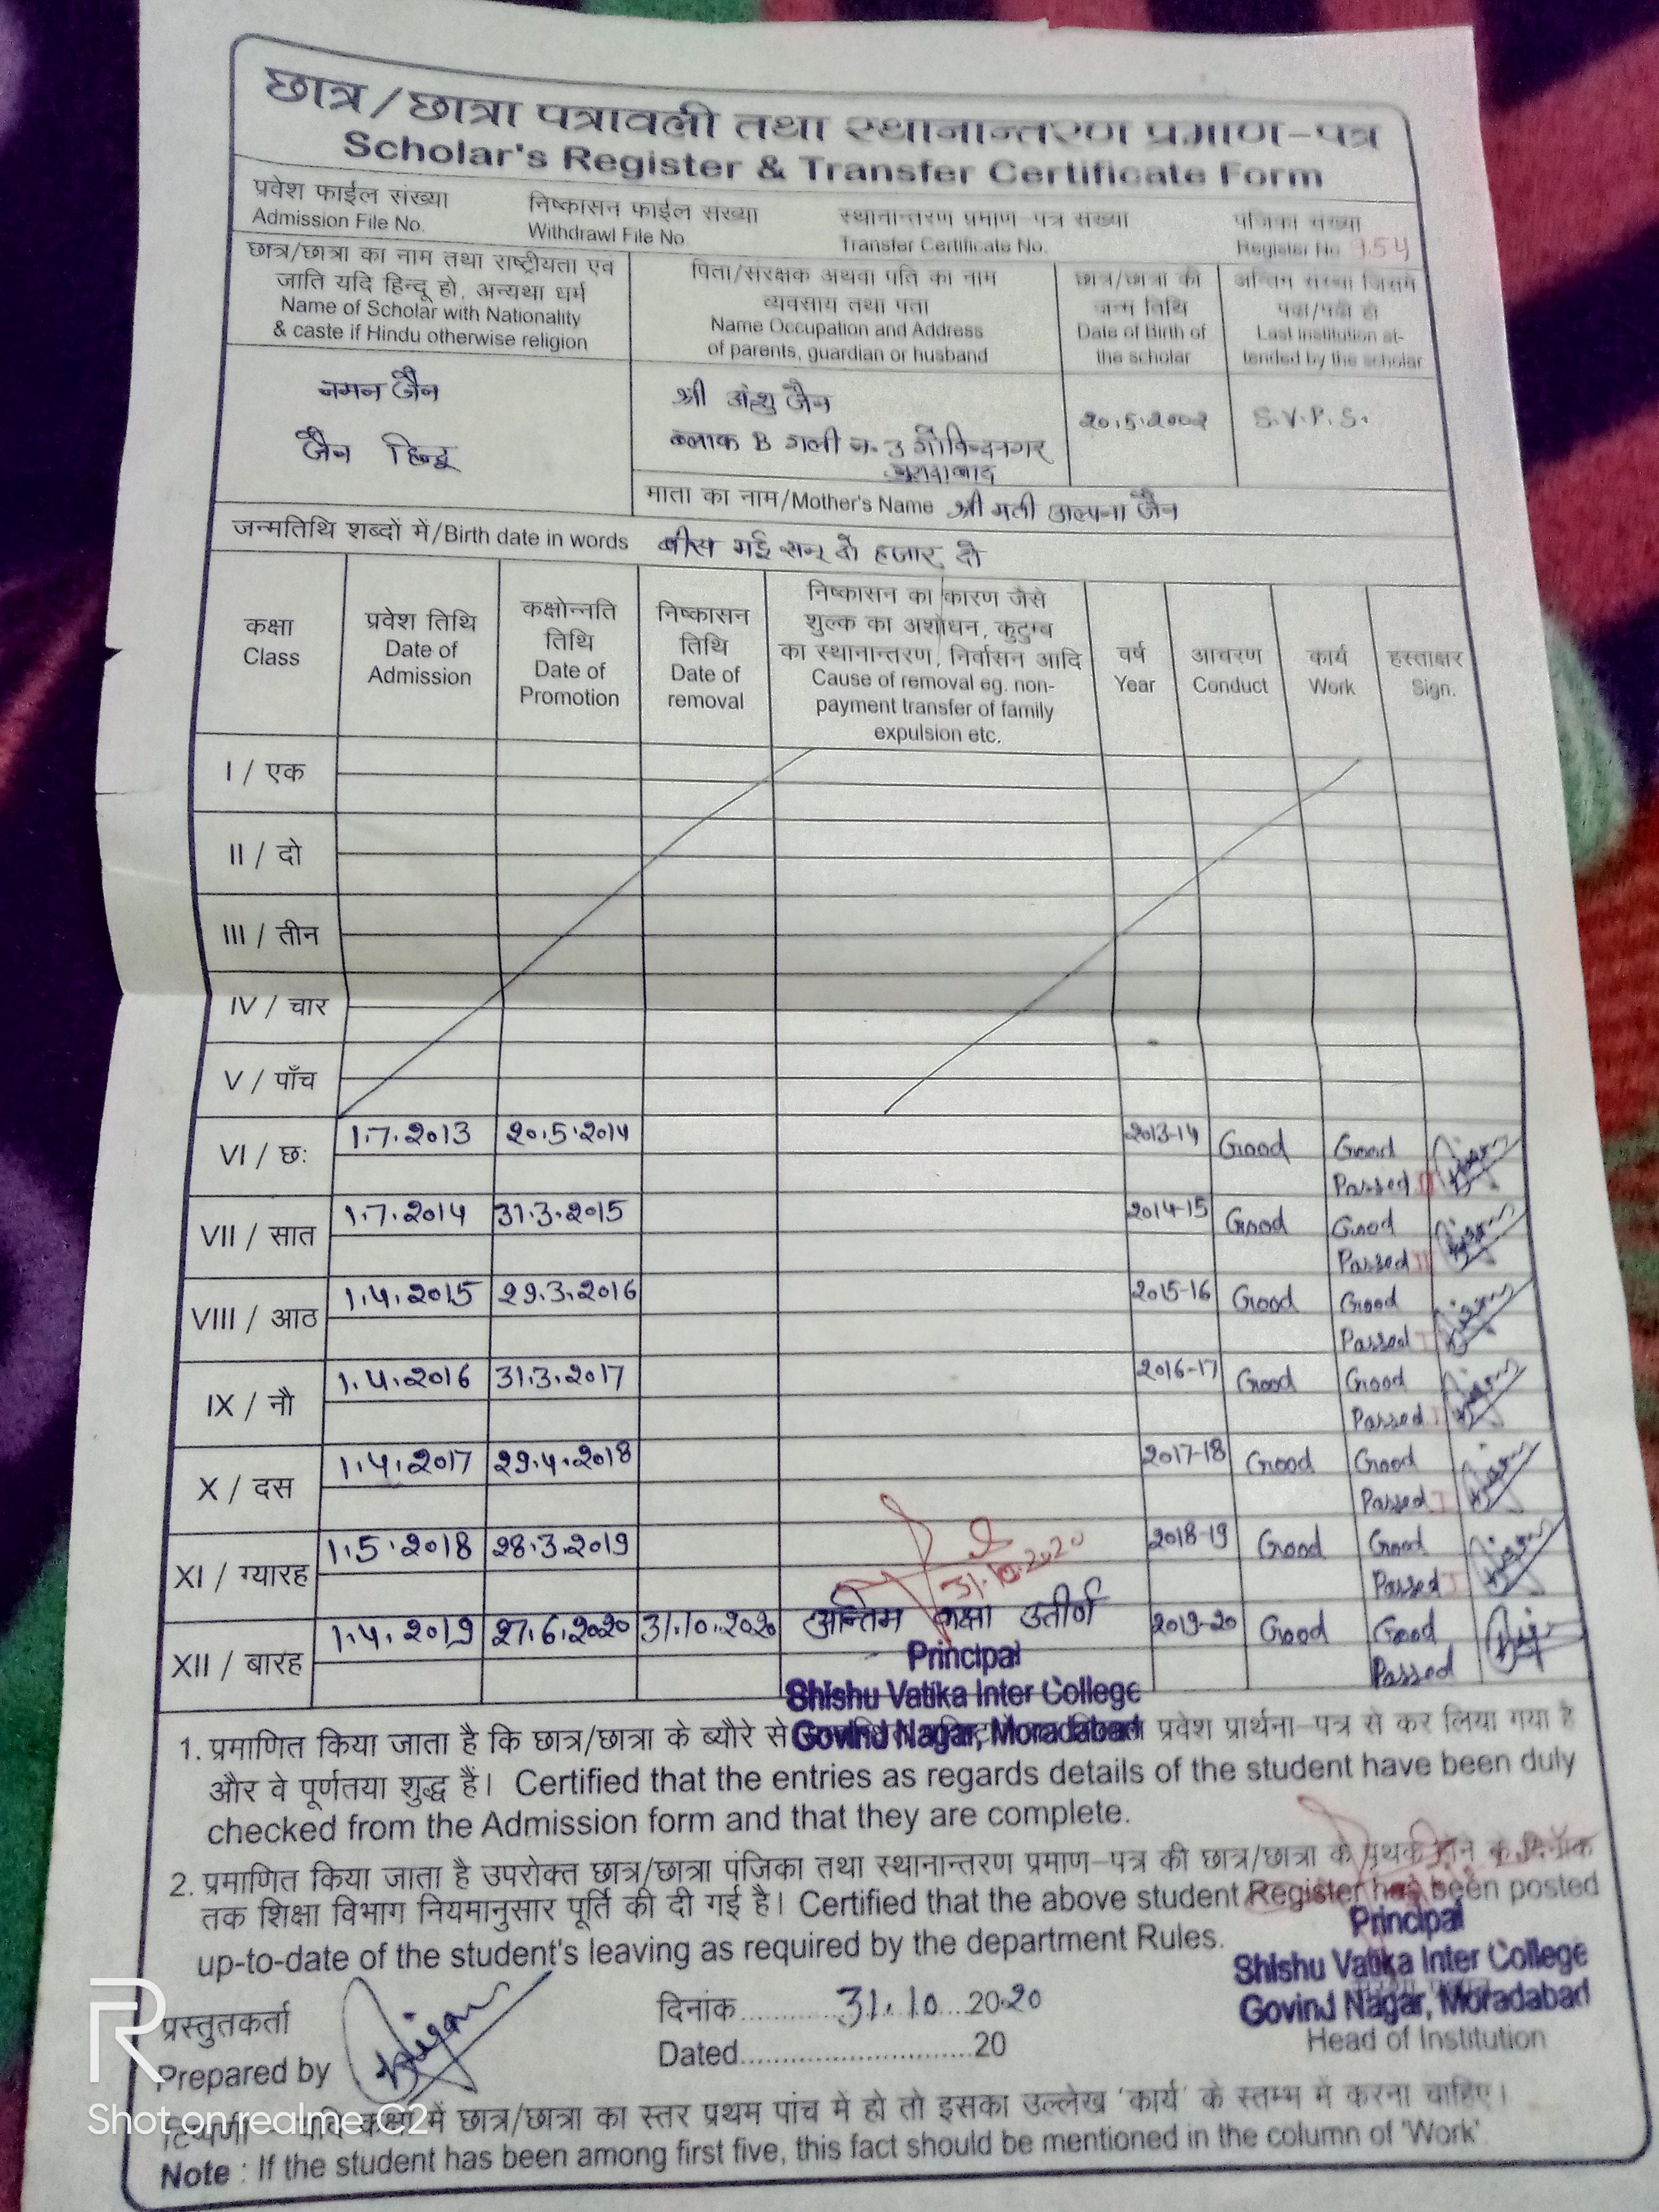 छात्र/छात्रा पत्रावली तथा स्थानान्तरण प्रमाण-पत्र
Scholar's Register & Transfer Certificate Form
प्रवेश फाईल संख्या
Admission File No.
निष्कासन फाईल संख्या
Withdrawl File No.
स्थानान्तरण प्रमाण-पत्र संख्या
Transfer Certificate No.
पंजिका संख्या
Register No.
छात्र/छात्रा का नाम तथा राष्ट्रीयता एवं
जाति यदि हिन्दू हो, अन्यथा धर्म
Name of Scholar with Nationality
& caste if Hindu otherwise religion
पिता/संरक्षक अथवा पति का नाम
व्यवसाय तथा पता
Name Occupation and Address
of parents, guardian or husband
छात्र/छात्रा की
जन्म तिथि
Date of Birth of
the scholar
अन्तिम संस्था जिसमें
पढ़ा/पढ़ी हो
Last Institution at-
tended by the scholar
नमन जैन
जैन हिन्दू
श्री अंशु जैन
ब्लाक B गली न. 3 गोविन्दनगर
मुरादाबाद
20.5.2002
S.V.P.S.
माता का नाम/Mother's Name श्री मती अल्पना जैन
जन्मतिथि शब्दों में/Birth date in words बीस मई सन् दो हजार दो
कक्षा
Class
प्रवेश तिथि
Date of
Admission
कक्षोन्नति
तिथि
Date of
Promotion
निष्कासन
तिथि
Date of
removal
निष्कासन का कारण जैसे
शुल्क का अशोधन, कुटुम्ब
का स्थानान्तरण, निर्वासन आदि
Cause of removal eg. non-
payment transfer of family
expulsion etc.
वर्ष
Year
आचरण
Conduct
कार्य
Work
हस्ताक्षर
Sign.
I / एक
II / दो
III / तीन
IV / चार
V / पाँच
VI / छः 1.7.2013 20.5.2014 2013-14 Good Good
Passed
VII / सात 1.7.2014 31.3.2015 2014-15 Good Good
Passed II
VIII / आठ 1.4.2015 29.3.2016 2015-16 Good Good
Passed I
IX / नौ 1.4.2016 31.3.2017 2016-17 Good Good
Passed I
X / दस 1.4.2017 29.4.2018 2017-18 Good Good
Passed I
XI / ग्यारह 1.5.2018 28.3.2019 2018-19 Good Good
Passed I
31.10.2020
XII / बारह 1.4.2019 27.6.2020 31.10.2020 अन्तिम कक्षा उतीर्ण 2019-20 Good Good
Passed
Principal
Shishu Vatika Inter College
Govind Nagar, Moradabad
1. प्रमाणित किया जाता है कि छात्र/छात्रा के ब्यौरे से प्रवेश प्रार्थना-पत्र से कर लिया गया है
और वे पूर्णतया शुद्ध हैं। Certified that the entries as regards details of the student have been duly
checked from the Admission form and that they are complete.
2. प्रमाणित किया जाता है उपरोक्त छात्र/छात्रा पंजिका तथा स्थानान्तरण प्रमाण-पत्र की छात्र/छात्रा के पृथक होने के दिनांक
तक शिक्षा विभाग नियमानुसार पूर्ति की दी गई है। Certified that the above student Register has been posted
up-to-date of the student's leaving as required by the department Rules.
Principal
Shishu Vatika Inter College
Govind Nagar, Moradabad
Head of Institution
प्रस्तुतकर्ता
Prepared by
दिनांक.......... 31.10...2020
Dated..............................20
टिप्पणी - यदि कक्षा में छात्र/छात्रा का स्तर प्रथम पांच में हो तो इसका उल्लेख 'कार्य' के स्तम्भ में करना चाहिए।
Note : If the student has been among first five, this fact should be mentioned in the column of 'Work'.
R
Shot on realme C2